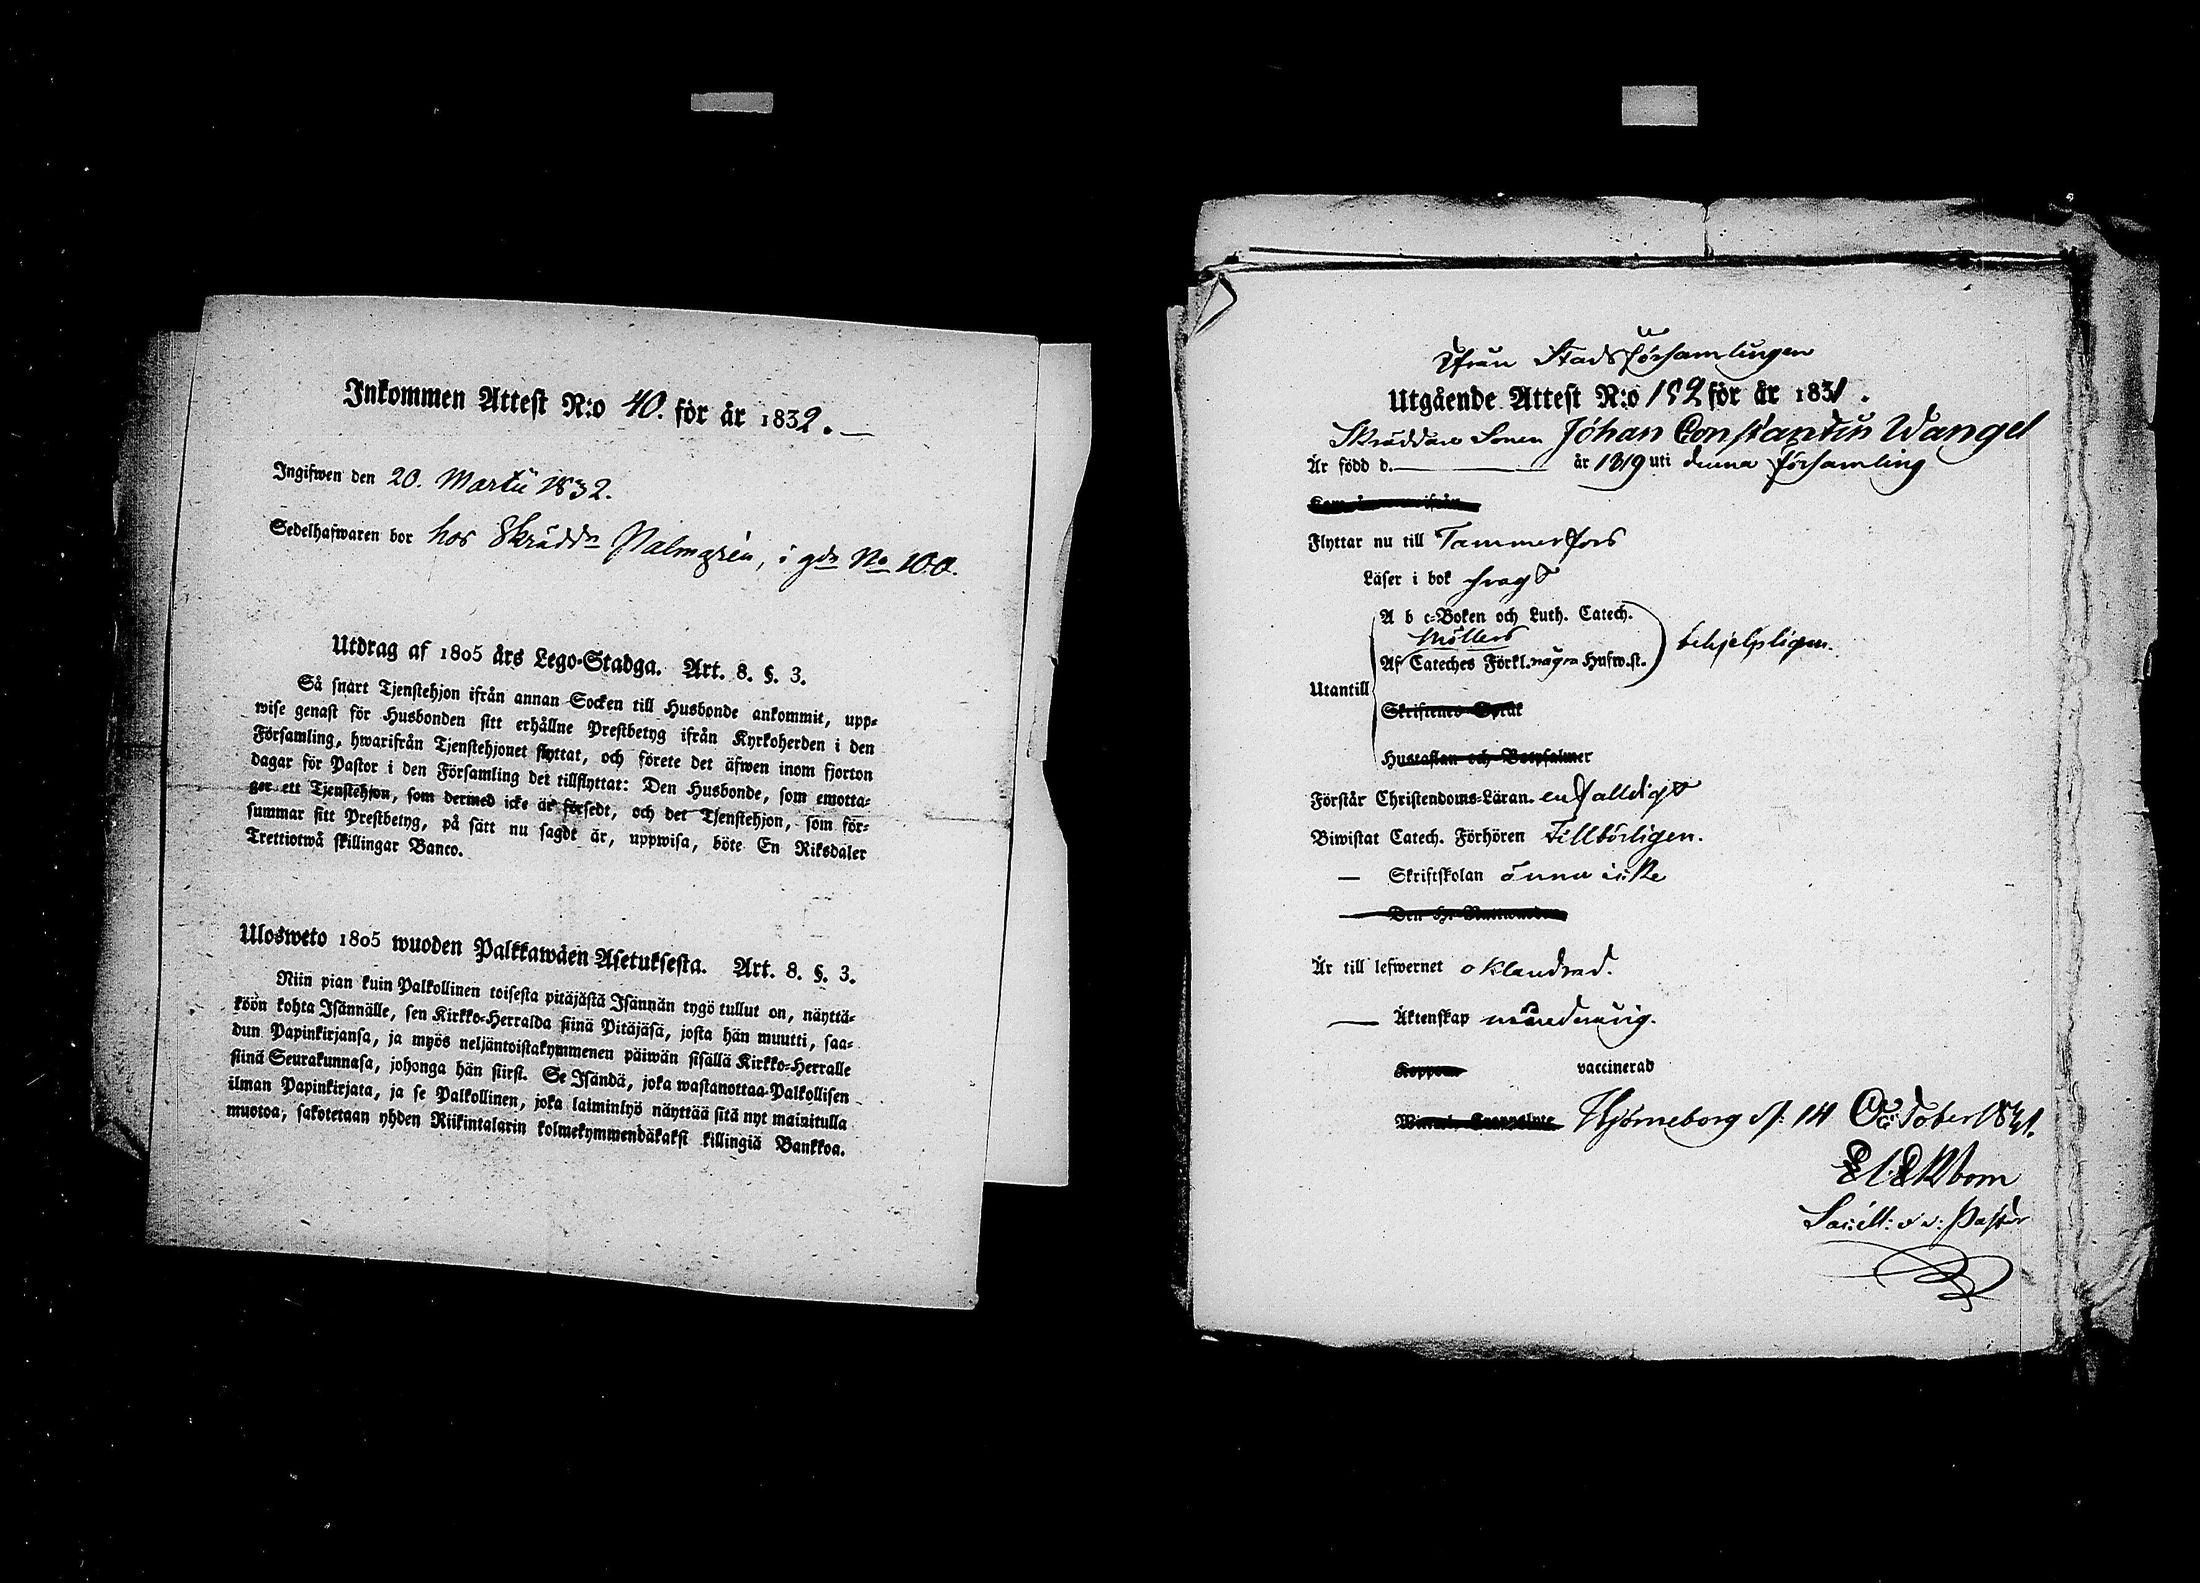 Inkommen Attest N:o 40. för år 1832.
Ingifwen den 20. Martii 1832.
Sedelhafwaren bor hos Skrädd:n Palmgrén, i gdn No 100.
Utdrag af 1805 års Lego-Stadga. Art. 8. §. 3.
Så snart Tjenstehjon ifrån annan Socken till Husbonde ankommit, upp-
wise genast för Husbonden sitt erhållne Prestbetyg ifrån Kyrkoherden i den
Församling, hwarifrån Tjenstehjonet flyttat, och förete det äfwen inom fjorton
dagar för Pastor i den Församling det tillflyttat: Den Husbonde, som emotta-
ger ett Tjenstehjon, som dermed icke är försedt, och det Tjenstehjon, som för-
summar sitt Prestbetyg, på sätt nu sagdt är, uppwisa, böte En Riksdaler
Trettiotwå skillingar Banco.
Ulosweto 1805 wuoden Palkkawäen Asetuksesta. Art. 8. §. 3.
Niin pian kuin Palkollinen toisesta pitäjästä Isännän tygö tullut on, näyttä-
köön kohta Isännälle, sen Kirkko-Herralda siinä Pitäjäsä, josta hän muutti, saa-
dun Papinkirjansa, ja myös neljäntoistakymmenen päiwän sisällä Kirkko-Herralle
siinä Seurakunnasa, johonga hän siirsi. Se Isändä, joka wastanottaa Palkollisen
ilman Papinkirjata, ja se Palkollinen, joka laiminlyö näyttää sitä nyt mainitulla
muotoa, sakotetaan yhden Riikintalarin kolmekymmendäkaksi killingiä Bankkoa.
Ifrån Stadsförsamlingen
Utgående Attest N:o 152 för år 1831.
Skräddare Sonen Johan Constantin Wangel
Är född d. år 1819 uti denna församling
Flyttar nu till Tammerfors
Läser i bok svagt
A b c-Boken och Luth. Catech.
Möllers
Af Cateches Förkl. några Hufw.st. behjelpligen.
Utantill
Skriftenes Språk
Hustaflan och Botpsalmer
Förstår Christendoms-Läran. enfaldigt
Biwistat Catech. Förhören tillbörligen.
— Skriftskolan ännu icke
Är till lefwernet oklandrad.
— Äktenskap minderårig.
Koppor vaccinerad
Björneborg d. 14 October 1831.
Ekbom
Sacell: o v: Pastor